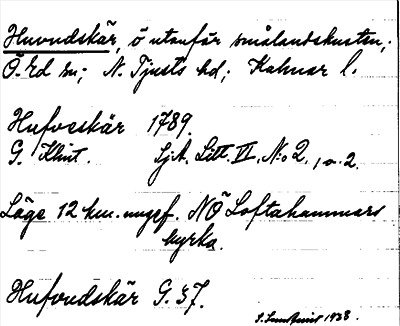 Huvudskär, ö utanför smålandskusten,
Ö. Ed sn; N. Tjusts hd; Kalmar l.
Hufvosskär 1789.
G. Klint. Sjk. Litt. VI, N:o 2, 1, o. 2.
Läge 12 km. ungef. NÖ Loftahammars
kyrka.
Hufvudskär G. 37.
1938.